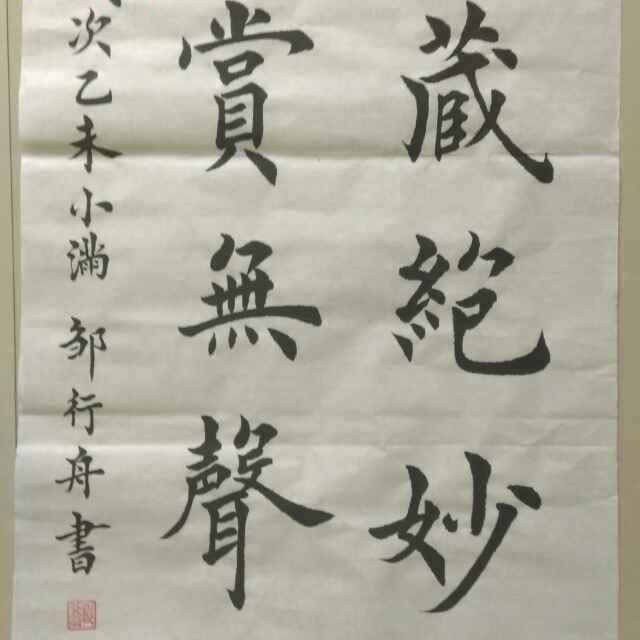 藏絕妙
賞無聲
次乙未小滿鄒行舟書